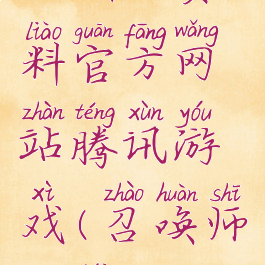 liào guān fāng wǎng
料官方网
zhàn téng xùn yóu
站腾讯游
xì zhào huàn shī
戏(召唤师